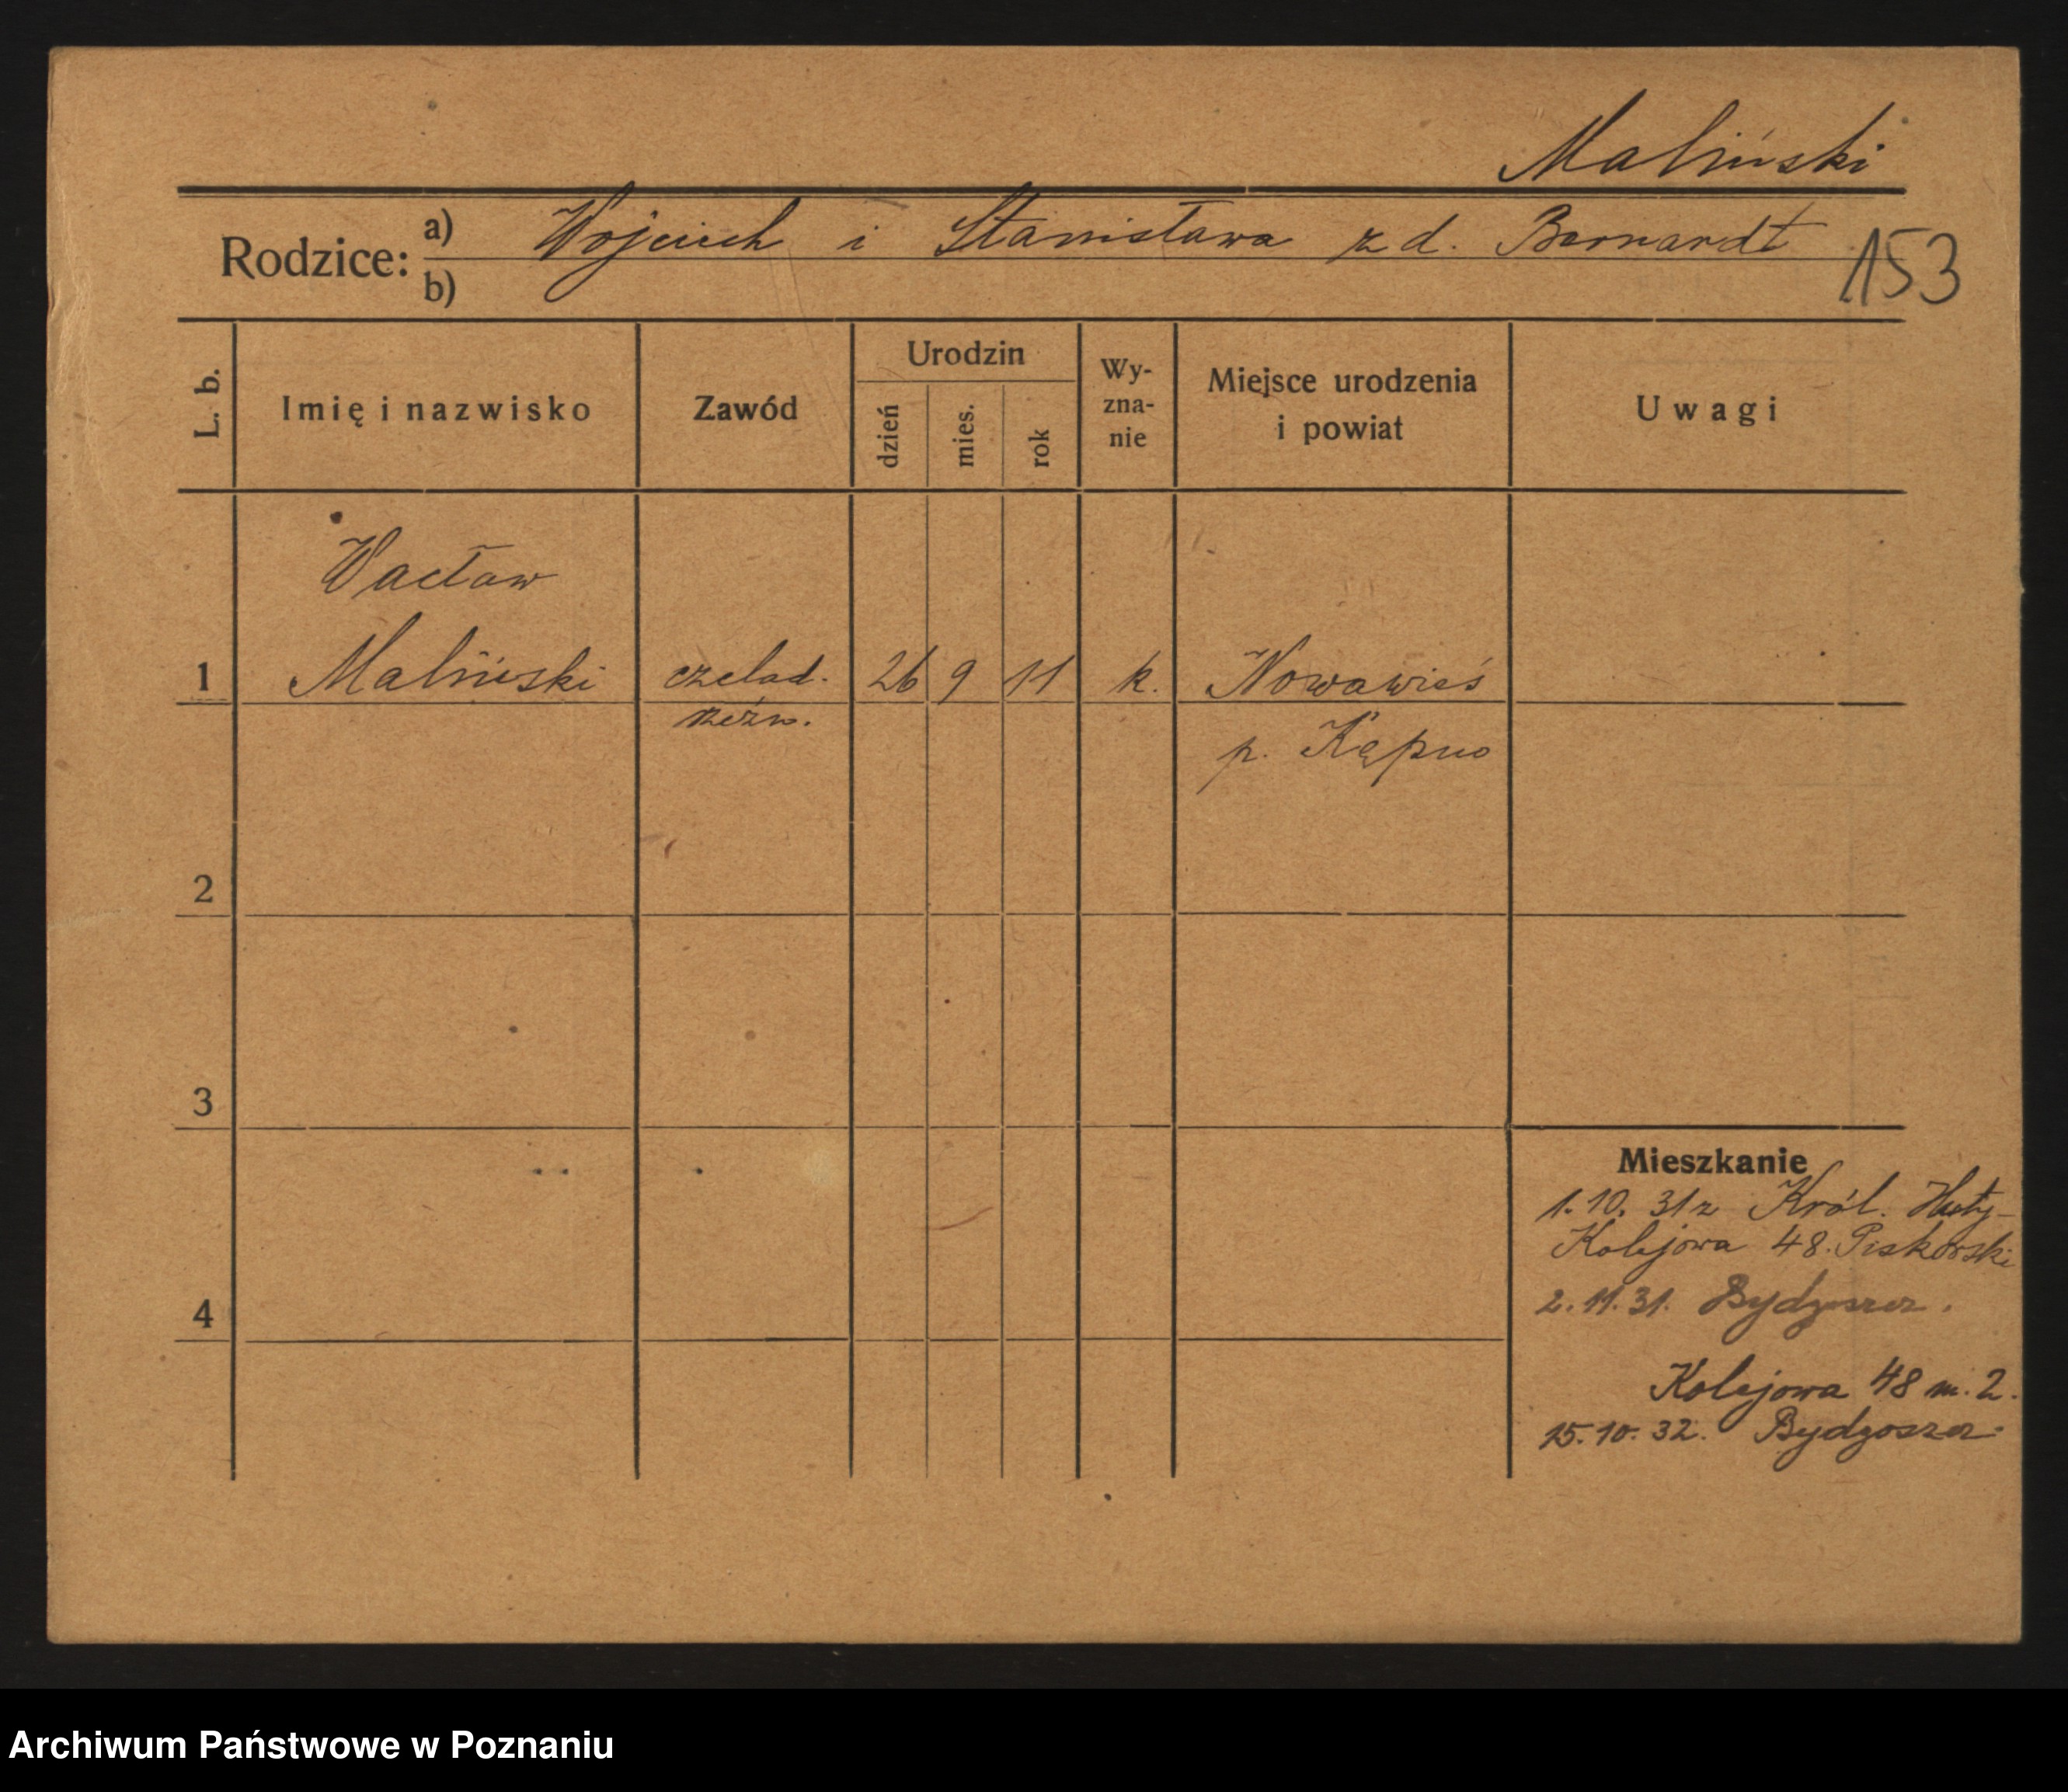 Maliński
Rodzice: a) Wojciech i Stanisława z d. Bernardt
b)
153
L. b.
Imię i nazwisko
Zawód
Urodzin
dzień
mies.
rok
Wy-
zna-
nie
Miejsce urodzenia
i powiat
Uwagi
Wacław
1 Maliński czelad. 26 9 11 k. Nowawieś
rzeźn.
p. Kępno
2
3
4
Mieszkanie
1.10.31 z Król. Huty-
Kolejowa 48. Piskorski
2.11.31. Bydgoszcz.
Kolejowa 48 m. 2.
15.10.32. Bydgoszcz.
Archiwum Państwowe w Poznaniu